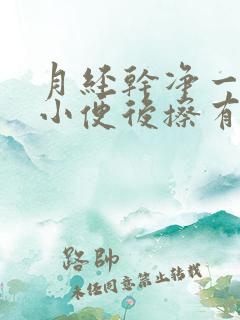 月經幹淨一
小便後擦有
路帥
未经同意禁止转载